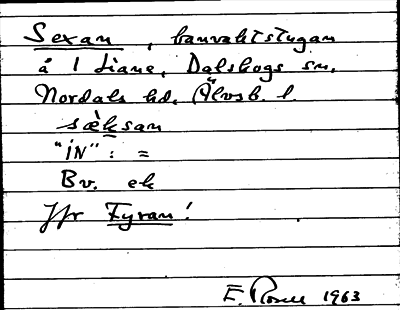 Sexan, banvaktstugan
å 1 Liane, Dalskogs sn,
Nordals hd, Älvsb. l.
sæ̀ksan
"iN" : =
Bv. ek
Jfr Fyran!
E. Rosell 1963